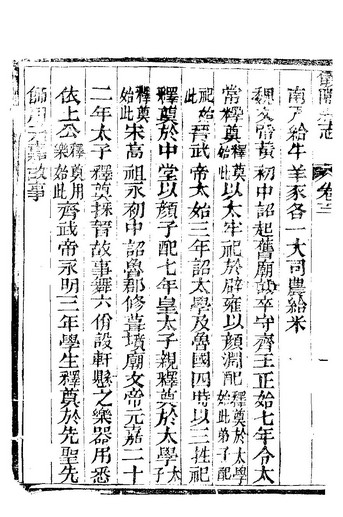 志 卷
南尹給牛羊豕各一大司農給米
魏文帝黃初中詔起舊廟設卒守齊王正始七年令太
常釋奠釋奠始此以太牢祀於辟雍以顏淵配釋奠於太學始此弟子配
祀始此晉武帝太始三年詔太學及魯國四時以三牲祀
釋奠於中堂以顏子配七年皇太子親釋奠於太學太
釋奠始此宋高祖永初中詔魯郡修葺墳廟文帝元嘉二十
二年太子釋奠採晉故事舞六佾設軒懸之樂器用悉
依上公釋奠用樂始此齊武帝永明三年學生釋奠於先聖先
師用元嘉故事